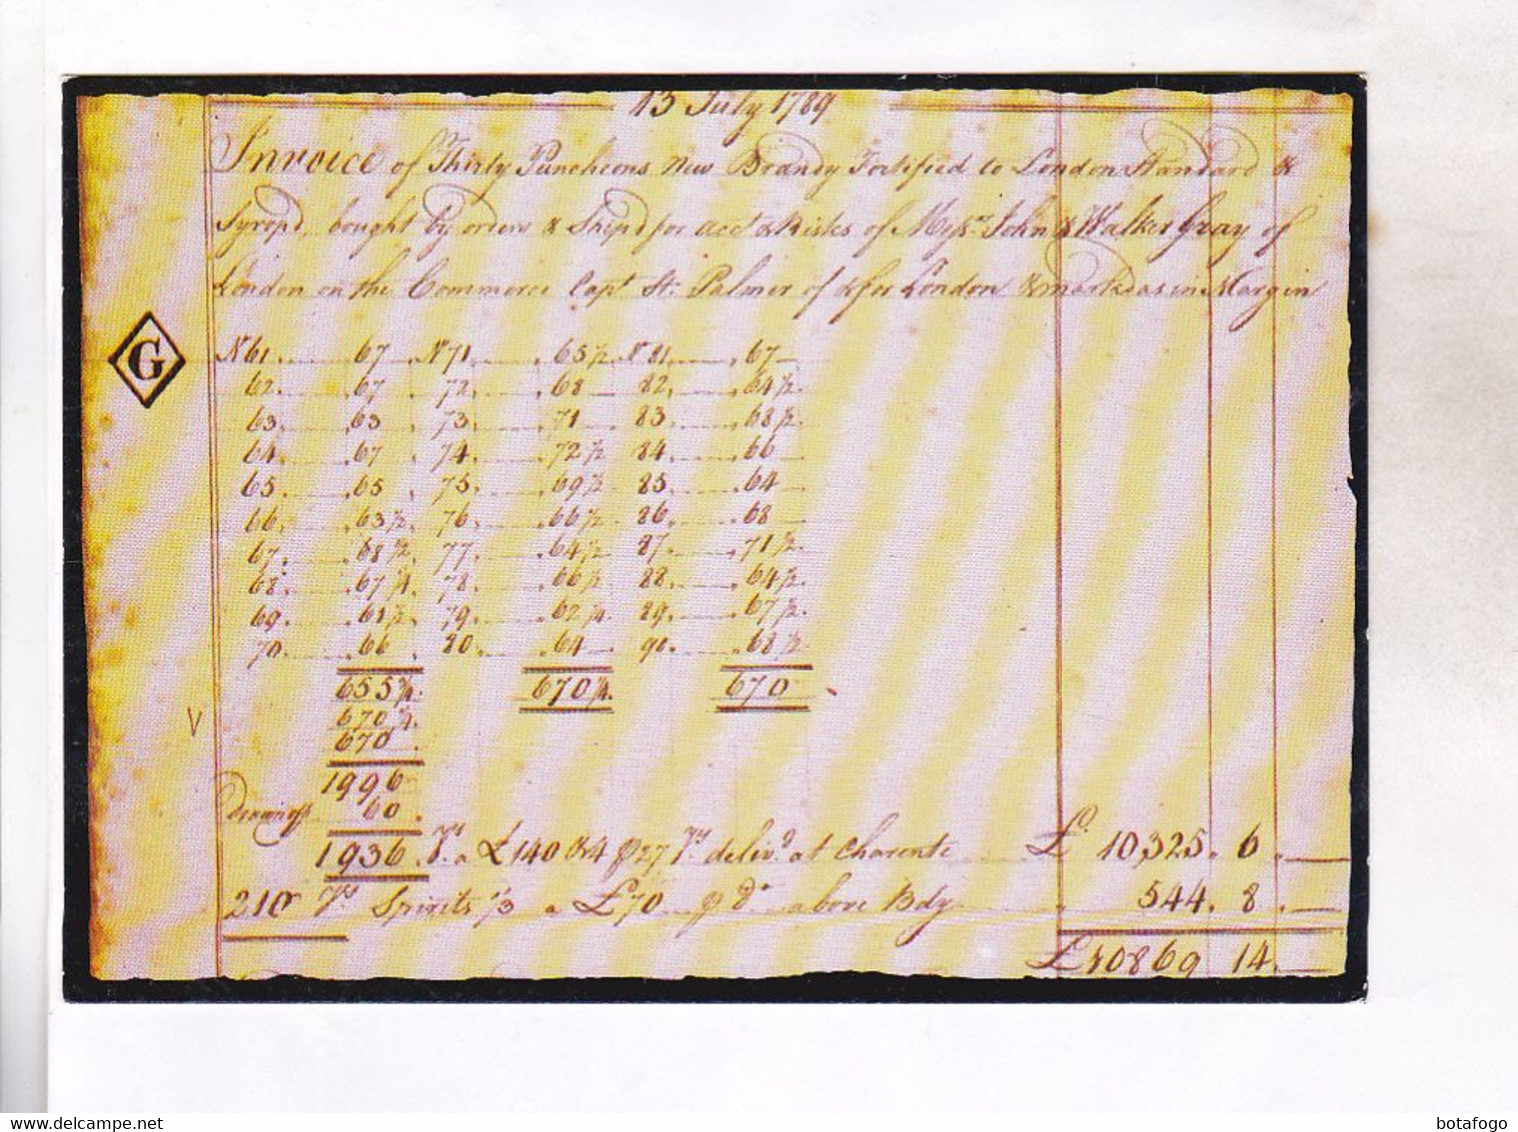 13 July 1789
Invoice of Thirty Puncheons New Brandy Fortified to London Standard &
Syrop'd, bought by orders & Ship'd for acct & Risks of Messrs John & Walker Gray of
London on the Commerce Capt St. Palmer of & for London & mark'd as in Margin
G
No 61 67 No 71 65 1/2 No 81 67
62 67 72 68 82 64 1/2
63 63 73 71 83 68 1/2
64 67 74 72 1/2 84 66
65 65 75 69 1/2 85 64
66 63 1/2 76 66 1/2 86 68
67 68 1/2 77 64 1/2 87 71 1/2
68 67 1/4 78 66 1/2 88 64 1/2
69 61 1/2 79 62 1/4 89 67 1/2
70 66 80 64 90 68 1/2
655 3/4 670 1/4 670
670 1/4
670
1996
60
1936 Vs a £140 & 4 p 27 Vs deliv'd at Charente £ 10,325 " 6 "
210 Vs Spirits 1/3 a £70 p do above Bdy 544 " 8 "
£10869 14
botafogo